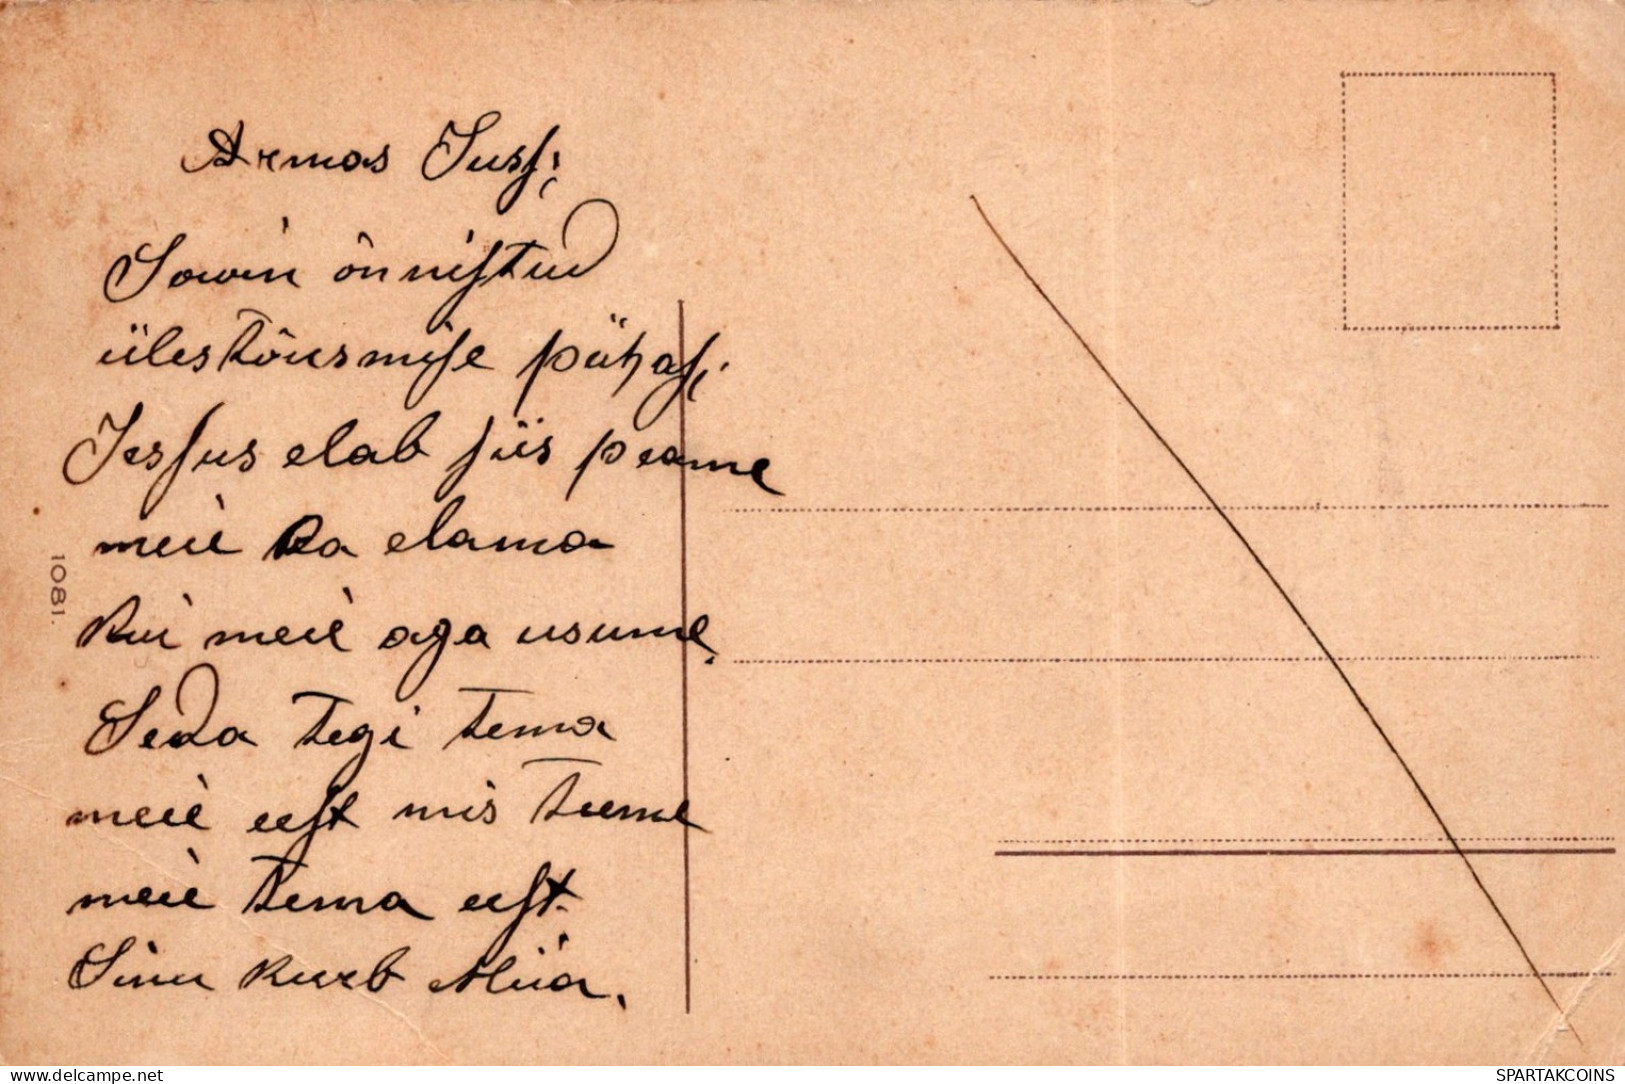 Armas Juss;
Sowin õnnistud
ülestõusmise pühas;
Jessus elab siis peame
meie ka elama
kui meie aga usume,
Seda tegi tema
meie eest mis teeme
meie tema eest.
Sinu kurb Miia.
1081.
delcampe.net
SPARTAKCOINS